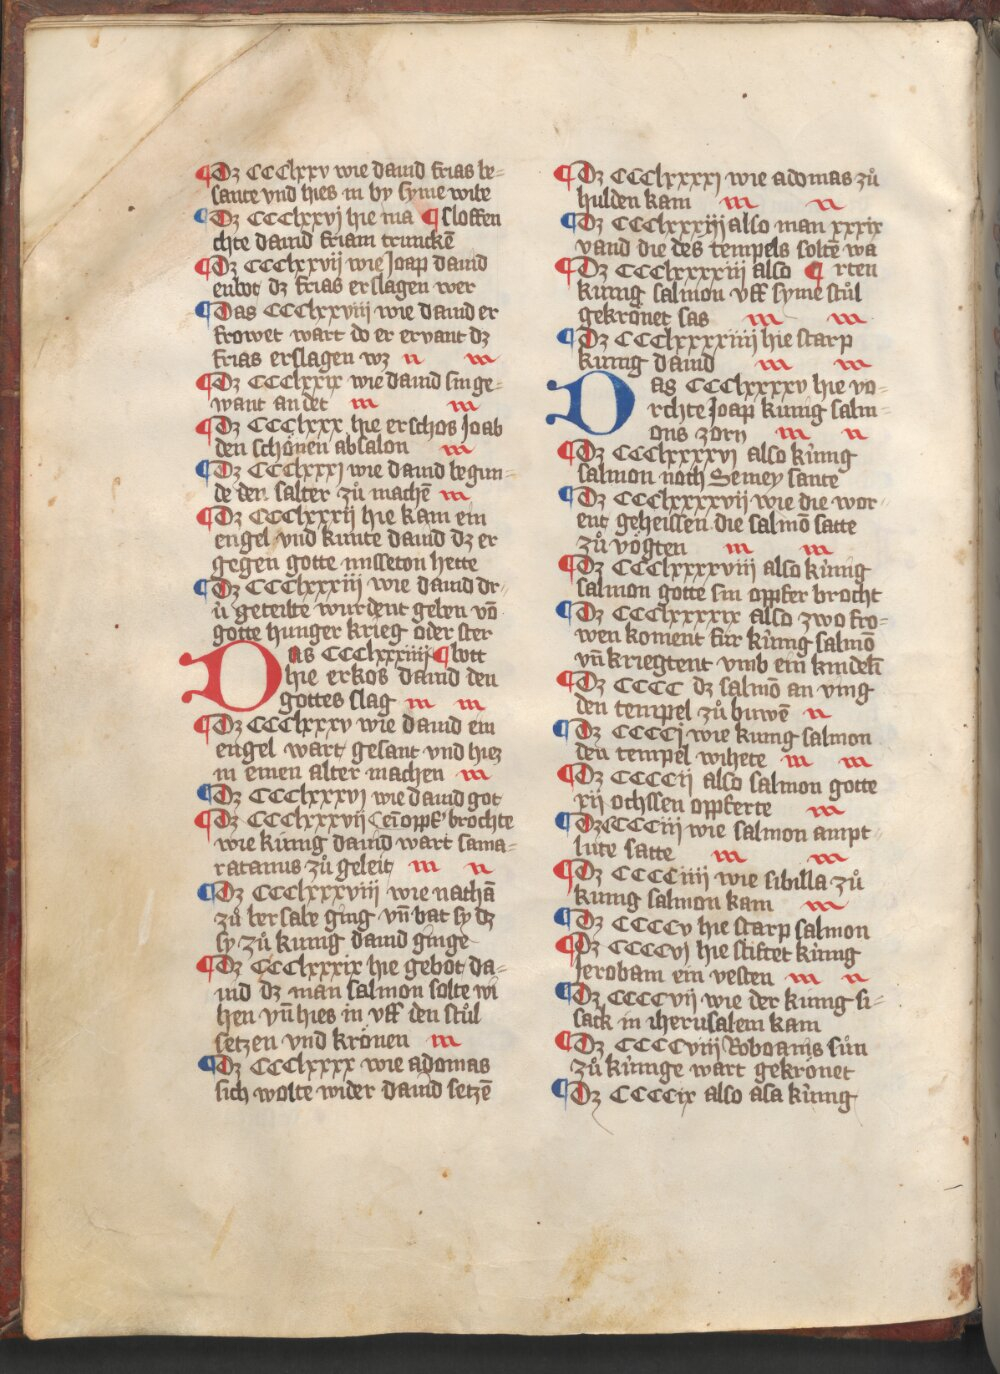 Dz CCClxxv wie dauid frias be⸗
sante vnd hies in by syme wibe
Dz CCClxxvj hie ma ¶ sloffen
chte dauid friam trunckē
Dz CCClxxvij wie Joap dauid
enbot dz frias erslagen wer
Das CCClxxviii wie dauid er
frowet wart do er ervant dz
frias erslagen wz
Dz CCClxxix wie dauid sin ge⸗
want an det
Dz CCClxxx hie erschos Joab
den schönen absalon
Dz CCClxxxj wie dauid begun⸗
de den salter zů machē
Dz CCClxxxij hie kam ein
engel vnd kunte dauid dz er
gegen gotte misseton hette
Dz CCClxxxiii wie dauid dr⸗
ü geteilte wurdent geben vō
gotte hunger krieg oder ster
Das CCClxxxiiij ¶ bott
hie erkos dauid den
gottes slag
Dz CCClxxxv wie dauid ein
engel wart gesant vnd hiez
in einen alter machen
Dz CCClxxxvj wie dauid got
Dz CCClxxxvij brochte
wie kúnig dauid wart sama⸗
ratanus zů geleit
Dz CCClxxxviii wie nathā
zů bersabe ging vn̄ bat sy dz
sy zů kunig dauid ginge
Dz CCClxxxix hie gebot da⸗
uid dz man salmon solte wi
hen vn̄ hies in vff den stůl
setzen vnd krönen
Dz CCClxxxx wie adomas
sich wolte wider dauid setzē
Dz CCClxxxxj wie adomas zů
hulden kam
Dz CCClxxxxiij also man xxxix
vand die des tempels soltē wa
Dz CCClxxxxiii also ¶ rten
kunig salmon vff syme stůl
gekrönet sas
Dz CCClxxxxiiij hie starp
kunig dauid
Das CCClxxxxv hie vo⸗
rchte Joap kunig salm⸗
ons zorn
Dz CCClxxxxvj also kúnig
salmon noch Semey sante
Dz CCClxxxxvij wie die wor⸗
ent geheissen die salmō satte
zů vögten
Dz CCClxxxxviii also kúnig
salmon gotte sin oppfer brocht
Dz CCClxxxxix also zwo fro⸗
wen koment für kúnig salmō
vn̄ kriegtent vmb ein kindeli
Dz CCCC dz salmō an ving
den tempel zů buwē
Dz CCCCj wie kunig salmon
den tempel wihete
Dz CCCCij also salmon gotte
xij ochssen oppferte
Dz CCCCiii wie salmon ampt⸗
lüte satte
Dz CCCCiiij wie sibilla zů
kunig salmon kam
Dz CCCCv hie starp salmon
Dz CCCCvj hie stiftet kúnig
Jerobam ein vesten
Dz CCCCvij wie der kunig si⸗
sack in iherusalem kam
Dz CCCCviii Roboams sún
zů kúnige wart gekrönet
Dz CCCCix also asa kúnig